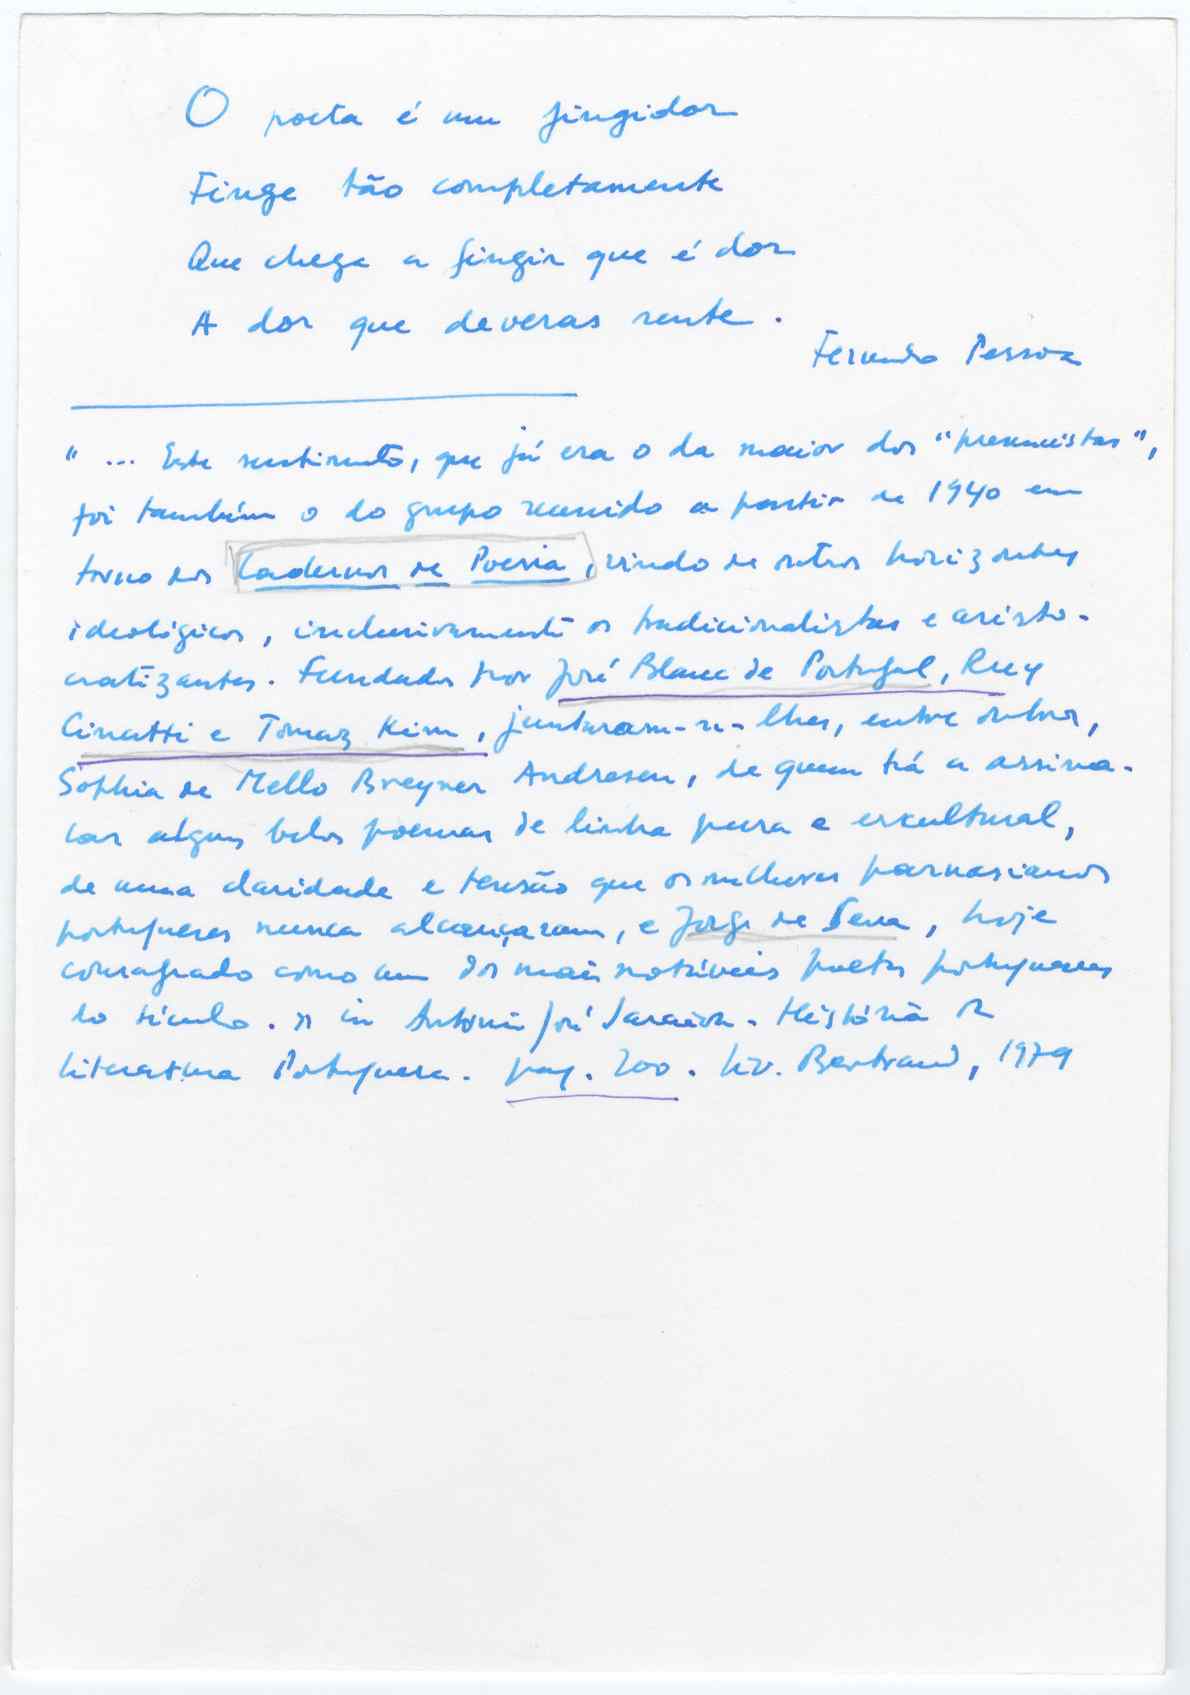 O poeta é um fingidor
Finge tão completamente
Que chega a fingir que é dor
A dor que deveras sente.
Fernando Pessoa
"... Este sentimento, que já era o da maior dos "presencistas",
foi também o do grupo reunido a partir de 1940 em
torno dos Cadernos de Poesia, vindo de outros horizontes
ideológicos, inclusivamente os tradicionalistas e aristo-
cratizantes. Fundados por José Blanc de Portugal, Ruy
Cinatti e Tomaz Kim, juntaram-se-lhes, entre outros,
Sophia de Mello Breyner Andresen, de quem há a assina-
lar alguns belos poemas de linha pura e escultural,
de uma claridade e tensão que os melhores parnasianos
portugueses nunca alcançaram, e Jorge de Sena, hoje
consagrado como um dos mais notáveis poetas portugueses
do século. » in António José Saraiva. História da
Literatura Portuguesa. pag. 200. Liv. Bertrand, 1979